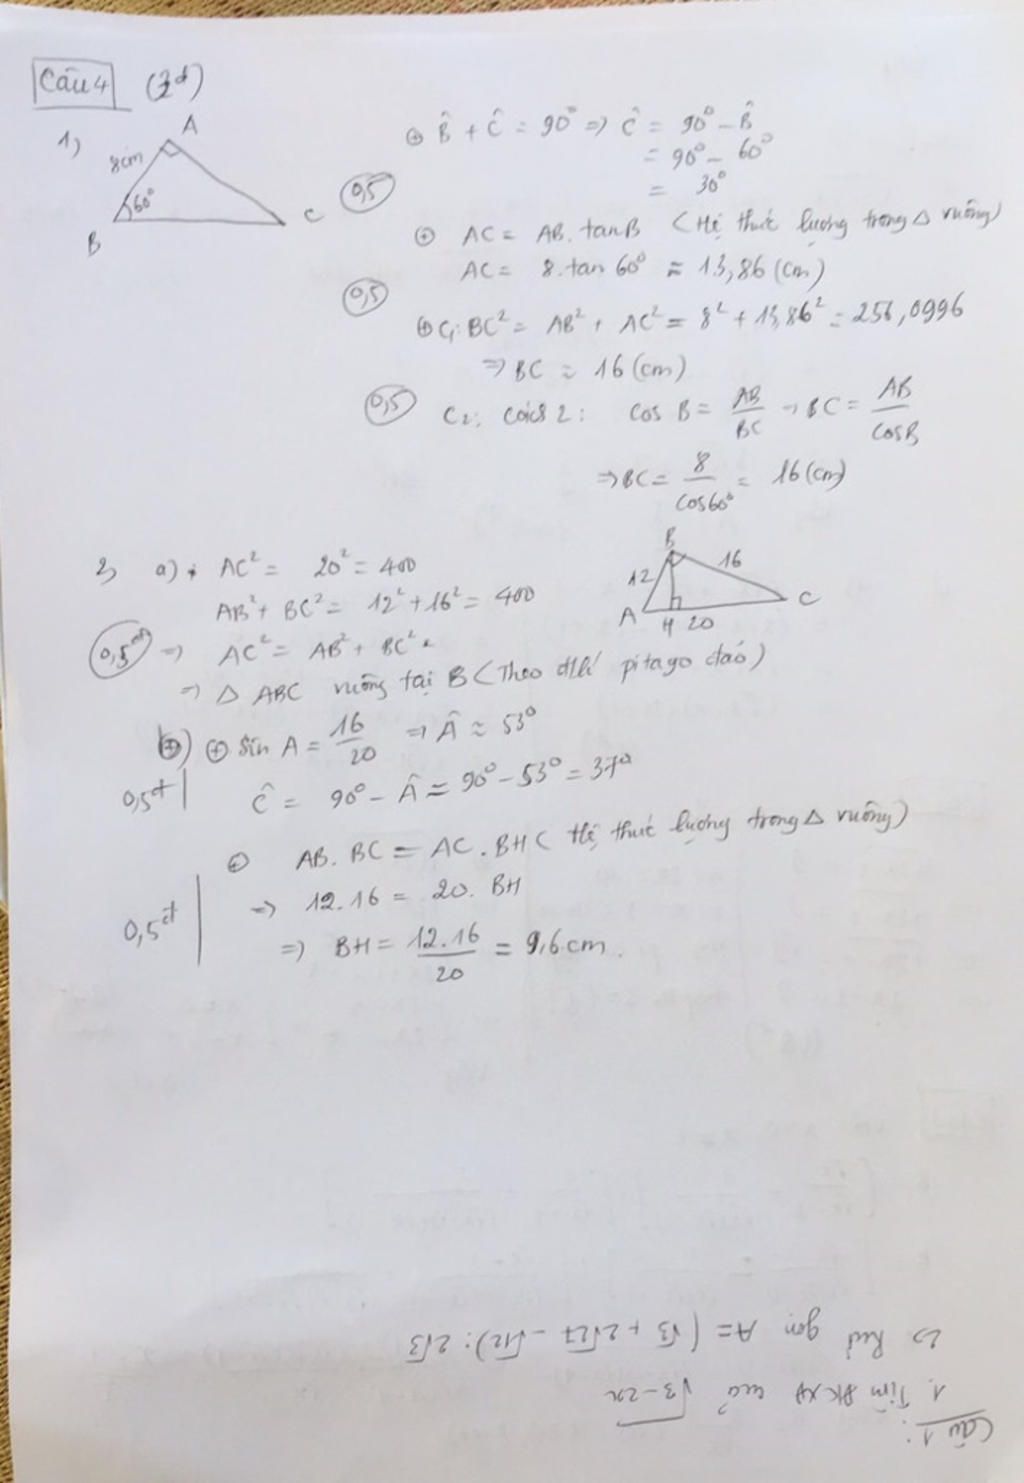 Câu 4 (3đ)
1)
A
8cm
60°
B
C
⊕ B̂ + Ĉ = 90° ⇒ Ĉ = 90° - B̂
= 90° - 60°
= 30°
0,5
⊕ AC = AB. tanB (Hệ thức lượng trong Δ vuông)
AC = 8.tan 60° ≈ 13,86 (cm)
0,5
⊕ C1: BC² = AB² + AC² = 8² + 13,86² = 256,0996
⇒ BC ≈ 16 (cm)
0,5
C2: cách 2: cos B = AB/BC → BC = AB/cosB
⇒ BC = 8/cos60° = 16 (cm)
2) a) • AC² = 20² = 400
AB² + BC² = 12² + 16² = 400
B
12
16
A
H
20
C
0,5đ ⇒ AC² = AB² + BC².
⇒ Δ ABC vuông tại B (Theo đlí pitago đảo)
b) ⊕ Sin A = 16/20 ⇒ Â ≈ 53°
0,5đ Ĉ = 90° - Â ≈ 90° - 53° = 37°
⊕ AB. BC = AC. BH (Hệ thức lượng trong Δ vuông)
⇒ 12.16 = 20. BH
0,5đ
⇒ BH = 12.16/20 = 9,6 cm.
Câu 1:
1. Tìm ĐKXĐ của √3-2x
2) Rút gọn A = (√3 + 2√27 - √12) : 2√3